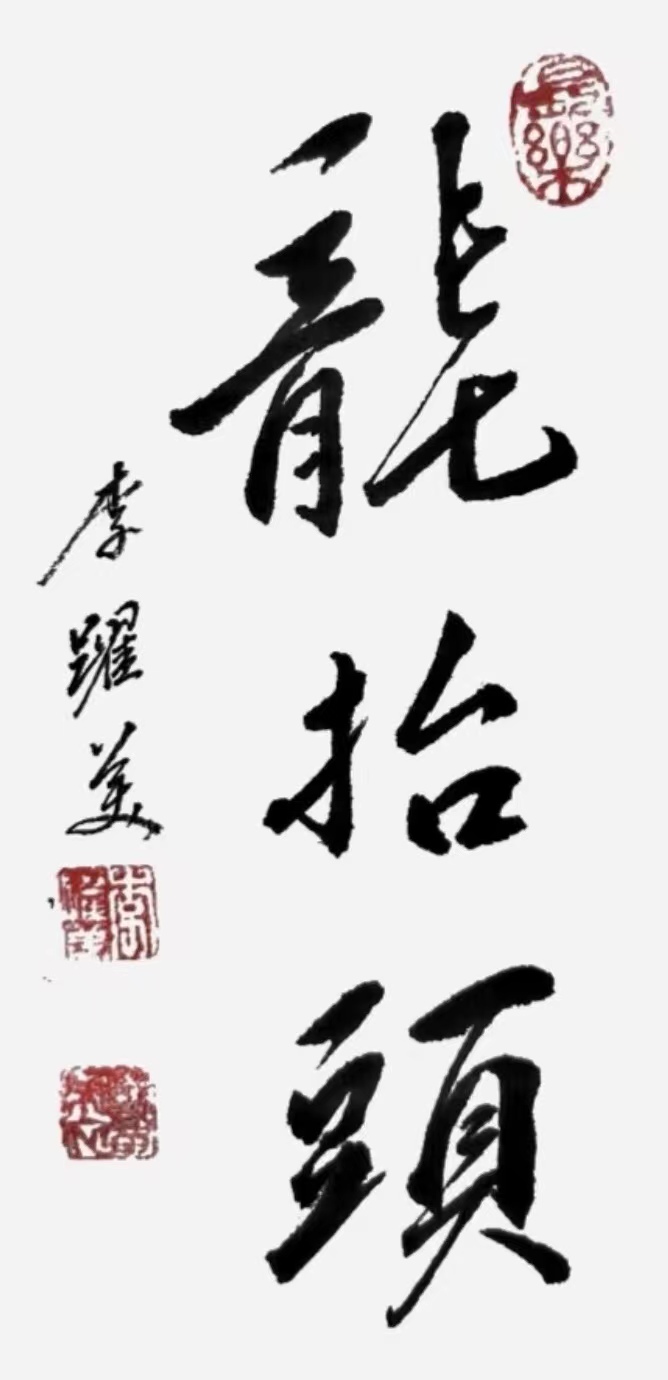 龍抬頭
李躍美